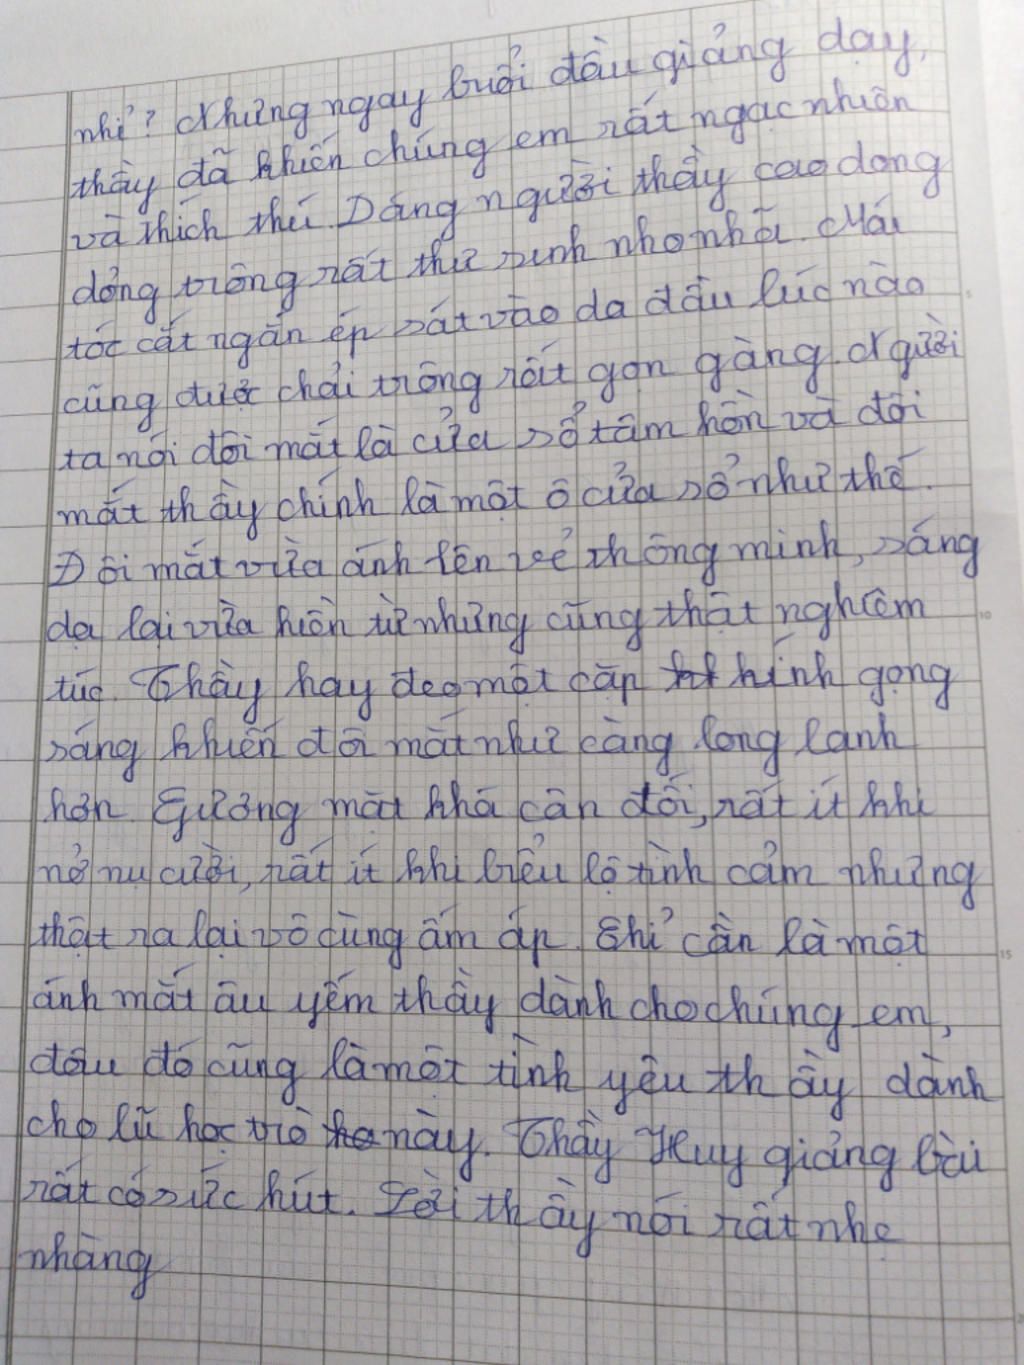 nhỉ? Nhưng ngay buổi đầu giảng dạy,
thầy đã khiến chúng em rất ngạc nhiên
và thích thú. Dáng người thầy cao dong
dỏng trông rất thư sinh nho nhã. Mái
tóc cắt ngắn ép sát vào da đầu lúc nào
cũng được chải trông rất gọn gàng. Người
ta nói đôi mắt là cửa sổ tâm hồn và đôi
mắt thầy chính là một ô cửa sổ như thế.
Đôi mắt vừa ánh lên vẻ thông minh, sáng
dạ lại vừa hiền từ nhưng cũng thật nghiêm
túc. Thầy hay đeo một cặp kính gọng
sáng khiến đôi mắt như càng long lanh
hơn. Gương mặt khá cân đối, rất ít khi
nở nụ cười, rất ít khi biểu lộ tình cảm nhưng
thật ra lại vô cùng ấm áp. Chỉ cần là một
ánh mắt âu yếm thầy dành cho chúng em,
đâu đó cũng là một tình yêu thầy dành
cho lũ học trò này. Thầy Huy giảng bài
rất có sức hút. Lời thầy nói rất nhẹ
nhàng